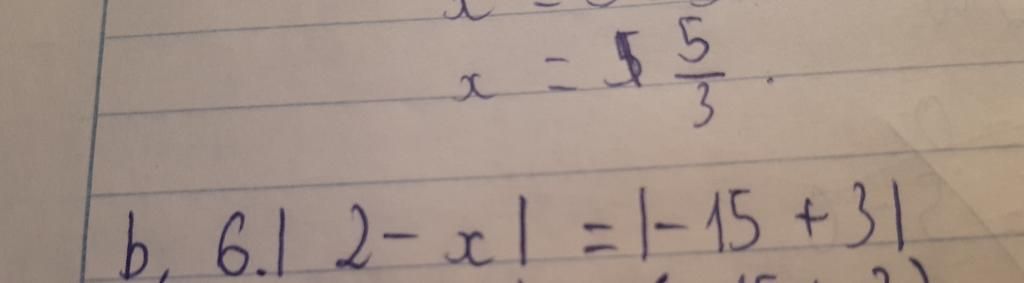 x = 5/3 .
b, 6.| 2 - x | = |- 15 + 3|